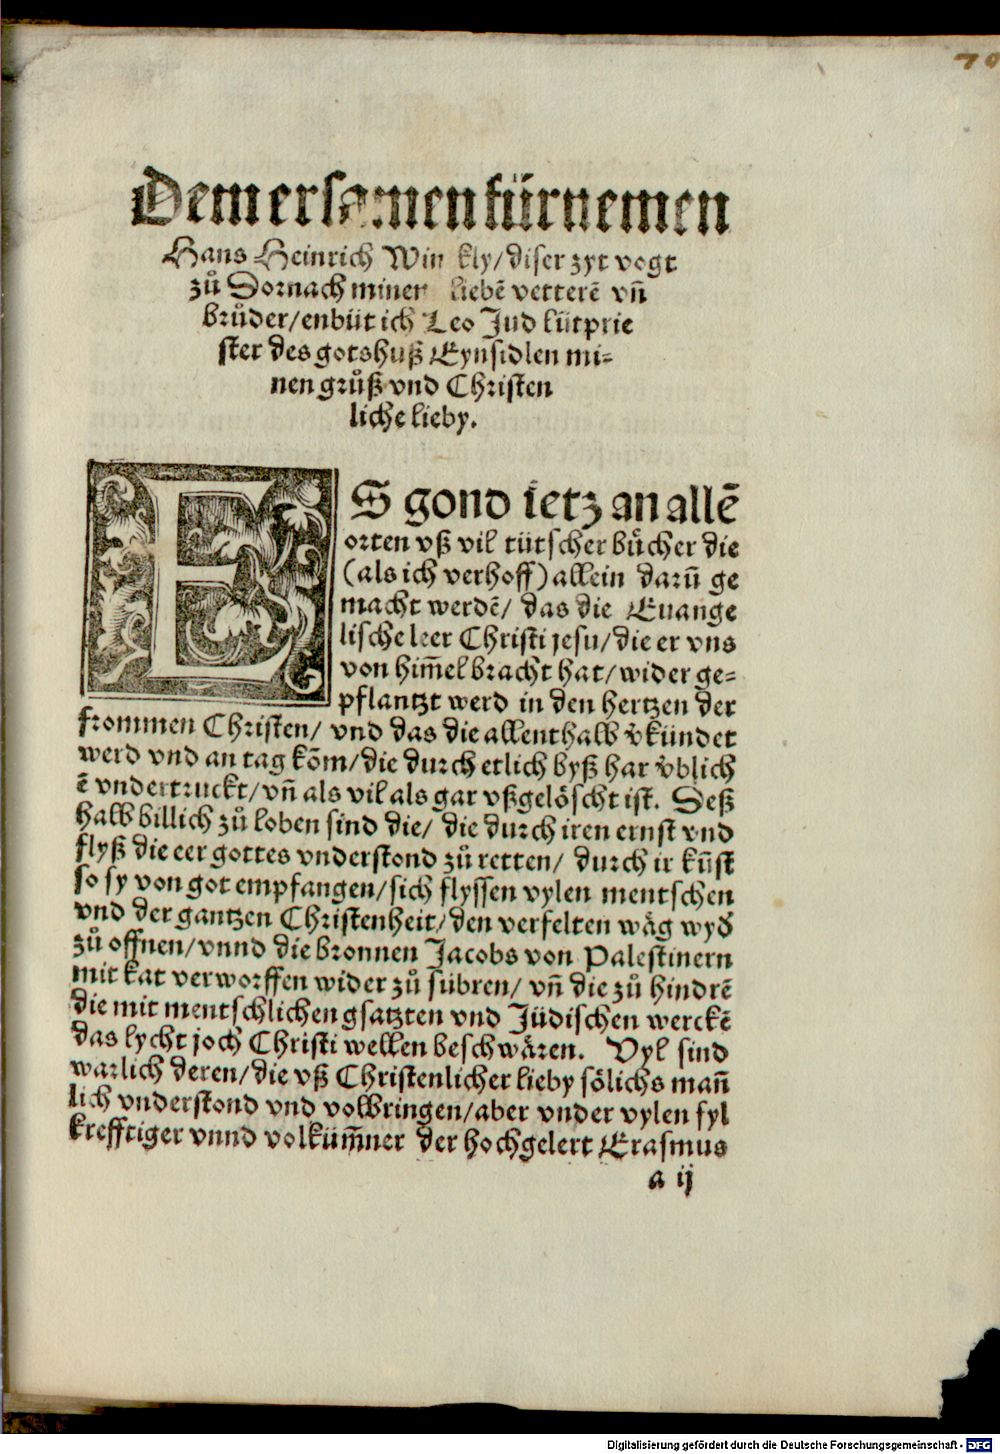 70
Dem ersamen fürnemen
Hans Heinrich Winkly/diser zyt vogt
zů Dornach minen liebē vetterē vñ
brůder/enbüt ich Leo Jud lütprie
ster des gotshuß Eynsidlen mi-
nen grůß vnd Christen
liche lieby.
ES gond ietz an allē
orten vß vil tütscher bůcher die
(als ich verhoff) allein darū ge
macht werdē/ das die Euange
lische leer Christi jesu/die er vns
von him̄el bracht hat/wider ge-
pflantzt werd in den hertzen der
frommen Christen/ vnd das die allenthalb v̄kündet
werd vnd an tag kōm/die durch etlich byß har v̈blich
ē vndertruckt/vñ als vil als gar vßgelöscht ist. Deß
halb billich zů loben sind die/ die durch iren ernst vnd
flyß die eer gottes vnderstond zů retten/ durch ir kūst
so sy von got empfangen/sich flyssen vylen mentschen
vnd der gantzen Christenheit/den verfelten wäg wyd̄
zů offnen/vnnd die bronnen Jacobs von Palestinern
mit kat verworffen wider zů sübren/ vñ die zů hindrē
die mit mentschlichen gsatzten vnd Jüdischen werckē
das lycht joch Christi wellen beschwären. Vyl sind
warlich deren/die vß Christenlicher lieby sölichs mañ
lich vnderstond vnd volbringen/aber vnder vylen fyl
krefftiger vnnd volküm̄ner der hochgelert Erasmus
a ij
Digitalisierung gefördert durch die Deutsche Forschungsgemeinschaft - DFG